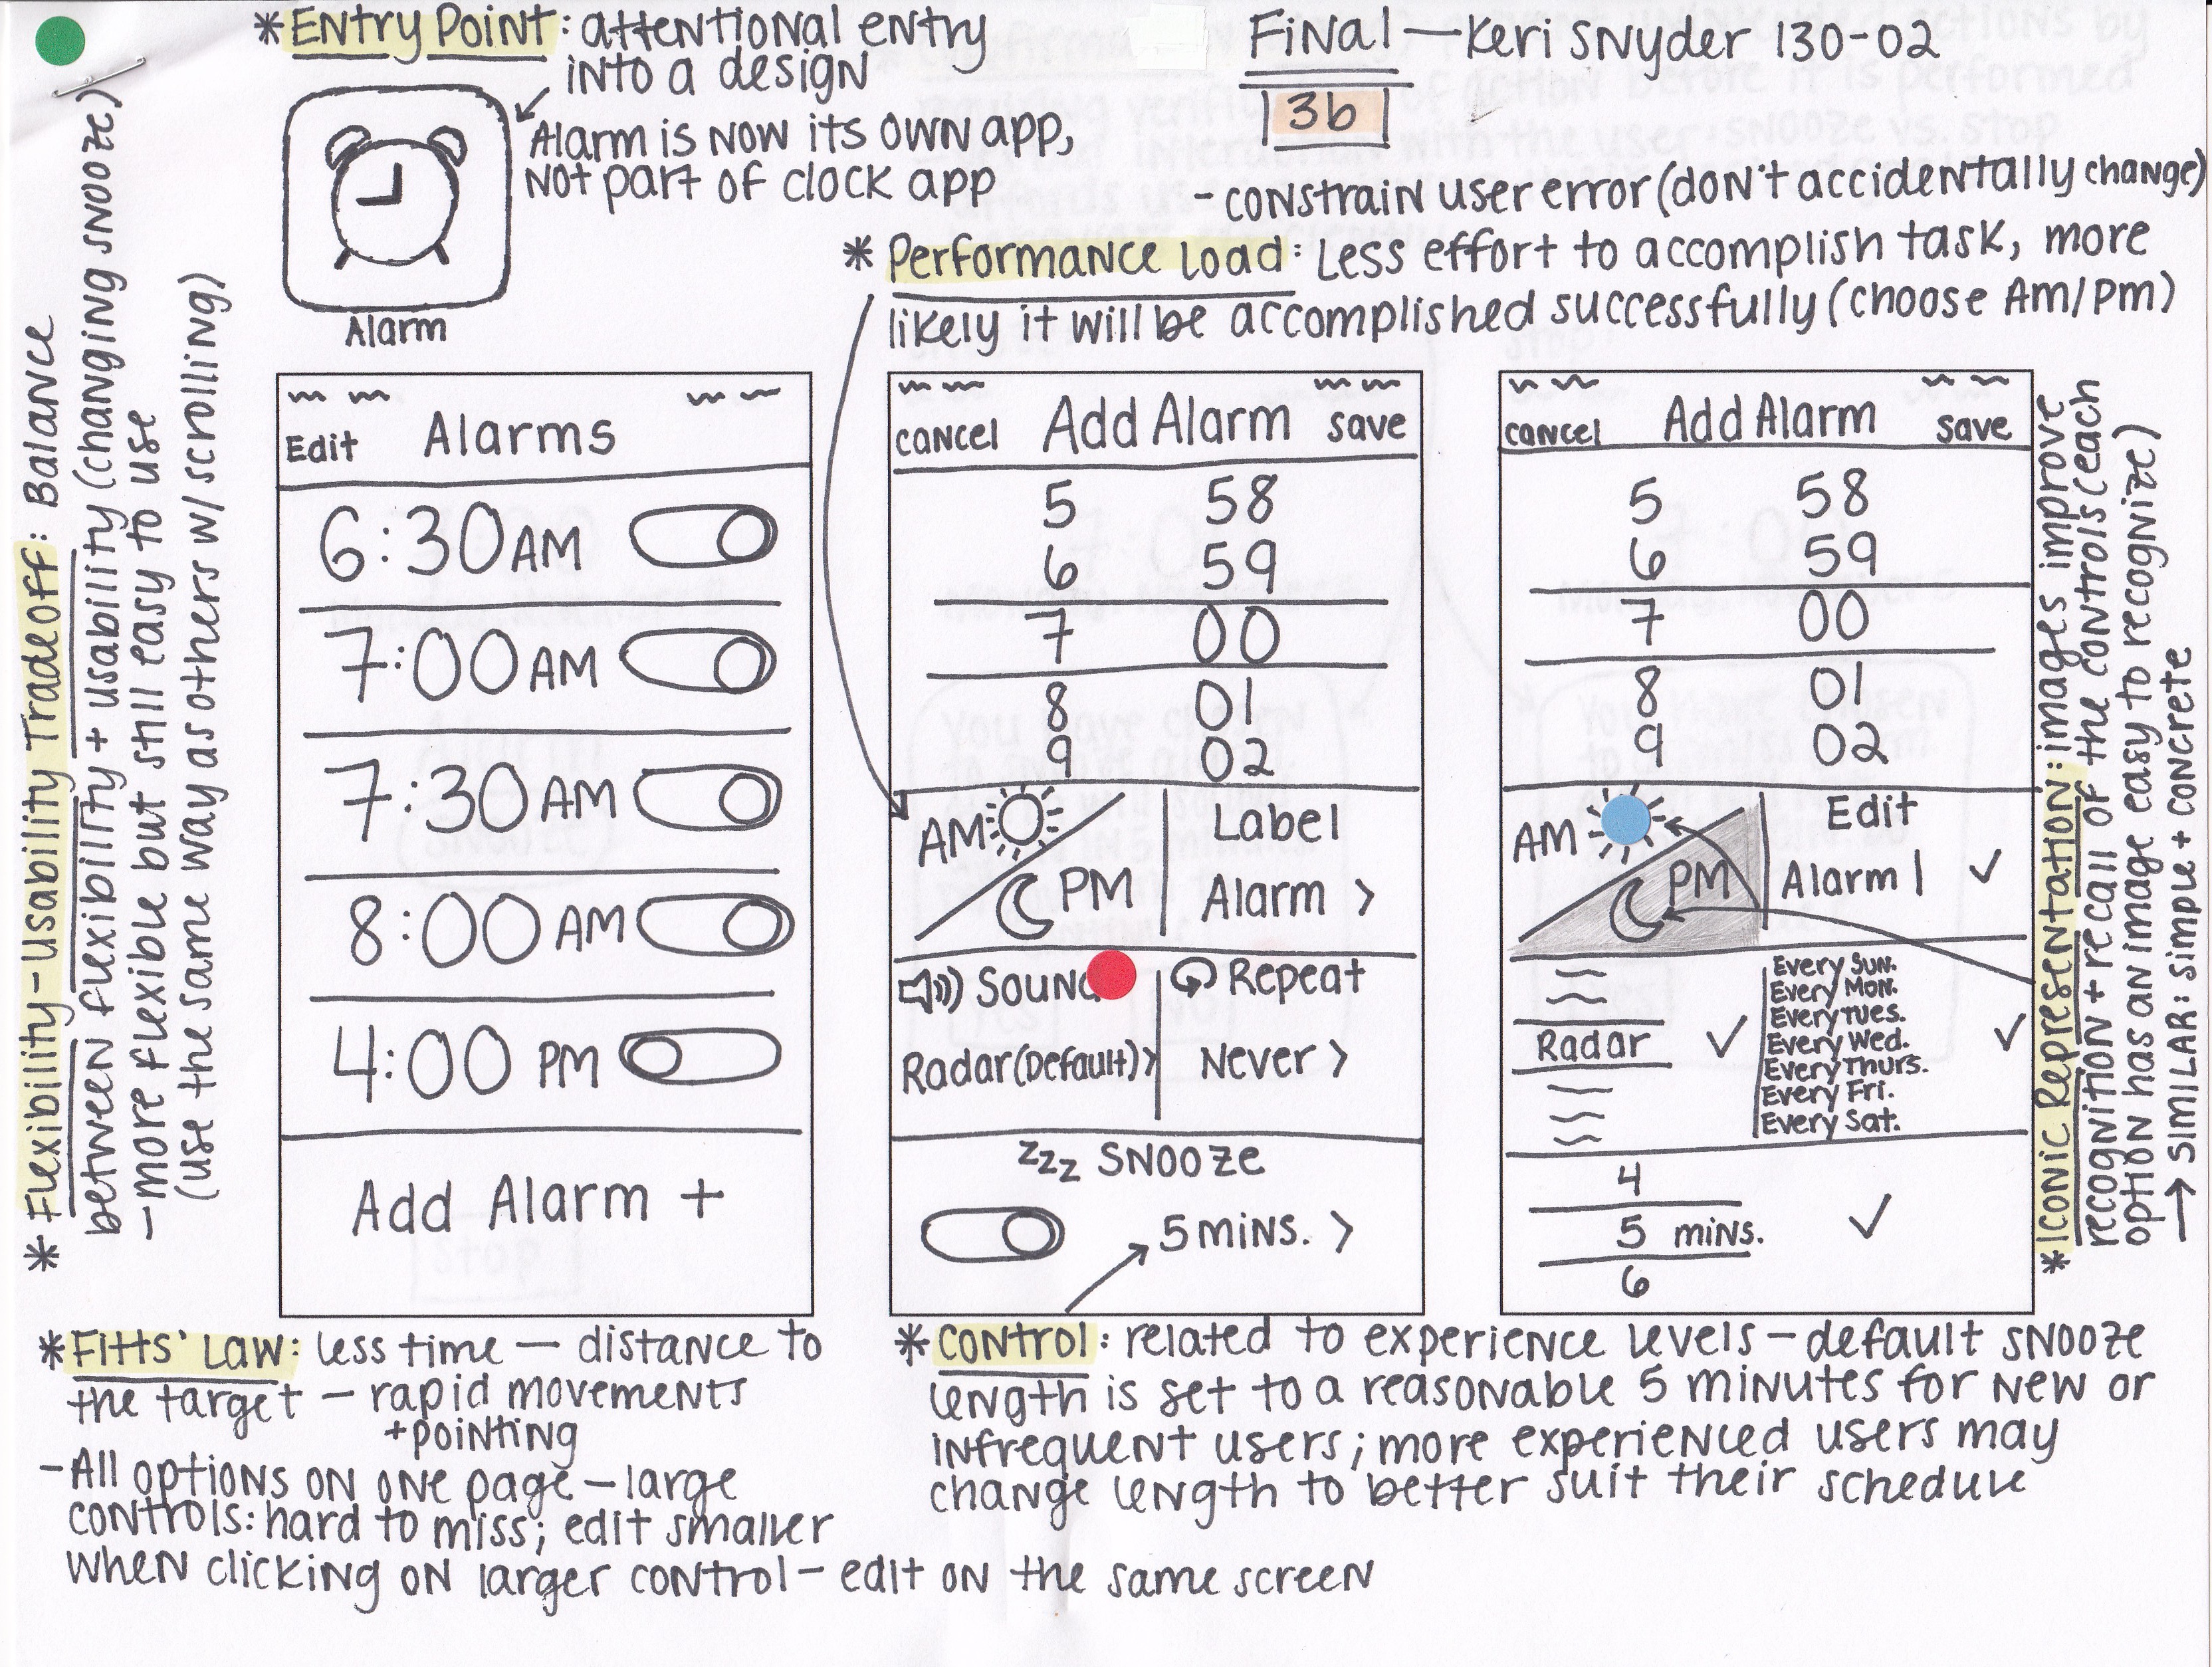 *Entry Point: attentional entry
into a design
Alarm is now its own app,
not part of clock app
Alarm
Final — Keri Snyder 130-02
3b
- constrain user error (don't accidentally change)
* Performance Load: Less effort to accomplish task, more
likely it will be accomplished successfully (choose Am/Pm)
* Flexibility-Usability Tradeoff: Balance
between flexibility + usability (changing snooze)
- more flexible but still easy to use
(use the same way as others w/ scrolling)
Edit Alarms
6:30 AM
7:00 AM
7:30 AM
8:00 AM
4:00 PM
Add Alarm +
cancel Add Alarm save
5 58
6 59
7 00
8 01
9 02
AM Label
PM Alarm >
Sound Repeat
Radar (Default) > Never >
zzz Snooze
5 mins. >
cancel Add Alarm save
5 58
6 59
7 00
8 01
9 02
AM Edit
PM Alarm | ✓
Every Sun.
Every Mon.
Every Tues.
Radar ✓ Every Wed. ✓
Every Thurs.
Every Fri.
Every Sat.
4
5 mins. ✓
6
*Iconic Representation: images improve
recognition + recall of the controls (each
option has an image easy to recognize)
→ SIMILAR: simple + concrete
*Fitts' Law: less time — distance to
the target — rapid movements
+ pointing
- All options on one page — large
controls: hard to miss; edit smaller
when clicking on larger control — edit on the same screen
* Control: related to experience levels — default snooze
length is set to a reasonable 5 minutes for new or
infrequent users; more experienced users may
change length to better suit their schedule